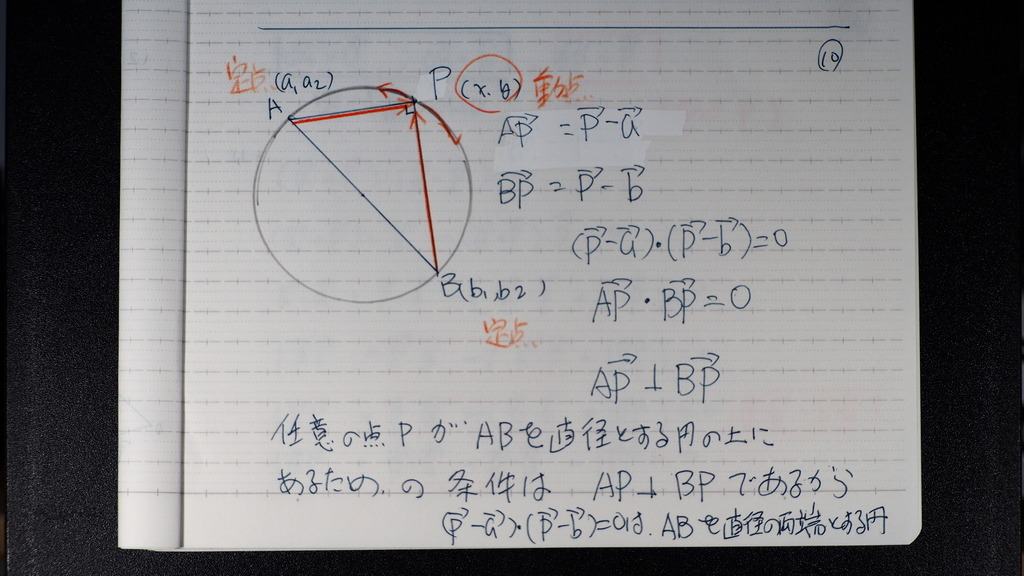 ⑩
定点 (a₁a₂)
A
P (x.y) 動点
AP→ = p→ - a→
BP→ = p→ - b→
(p→ - a→)・(p→ - b→) = 0
B(b₁,b₂)
AP→ ・ BP→ = 0
定点
AP→ ⊥ BP→
任意の点 P が AB を直径とする円の上に
あるための条件は AP⊥BP であるから
(p→ - a→)・(p→ - b→)=0は、ABを直径の両端とする円